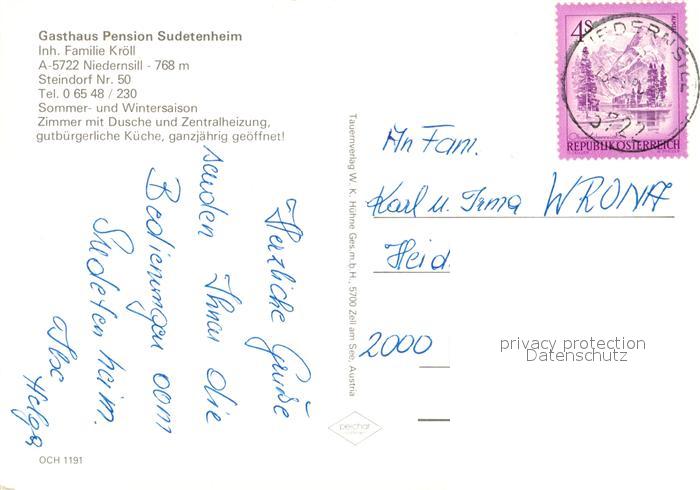 Gasthaus Pension Sudetenheim
Inh. Familie Kröll
A-5722 Niedernsill - 768 m
Steindorf Nr. 50
Tel. 0 65 48 / 230
Sommer- und Wintersaison
Zimmer mit Dusche und Zentralheizung,
gutbürgerliche Küche, ganzjährig geöffnet!
Herzliche Grüße
senden Ihnen die
Bedienungen vom
Sudetenheim.
Ilse
Helga
OCH 1191
Tauernverlag W. K. Hühne Ges.m.b.H., 5700 Zell am See, Austria
4 S
REPUBLIK ÖSTERREICH
NIEDERNSILL
5722
An Fam.
Karl u. Irma WRONA
Heid
2000
privacy protection
Datenschutz